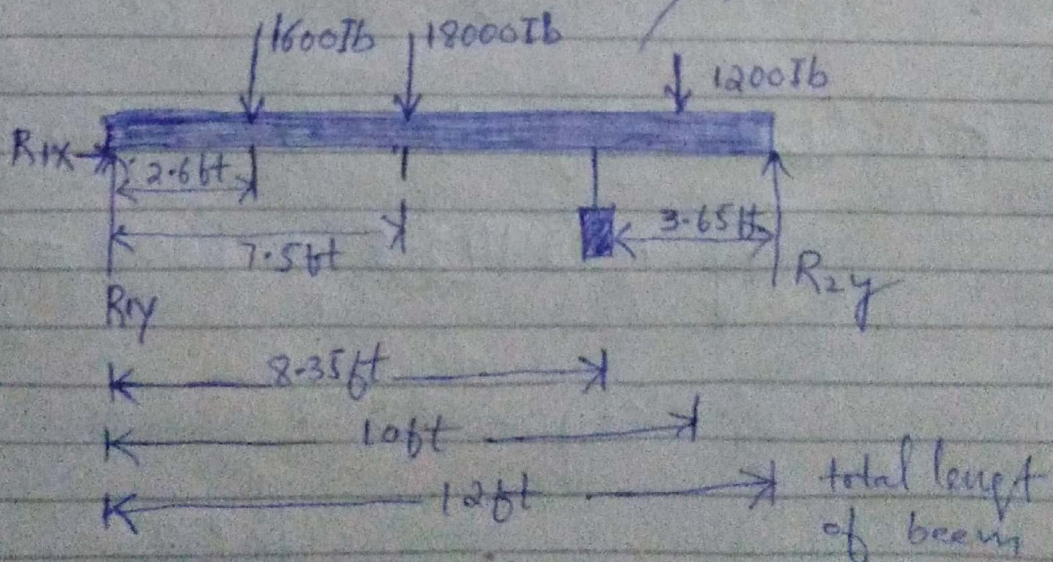 1600Ib 18000Ib
1200Ib
R1x
2.6ft
3.65ft
7.5ft
R2y
R1y
8.35ft
10ft
12ft total lengt
of beem